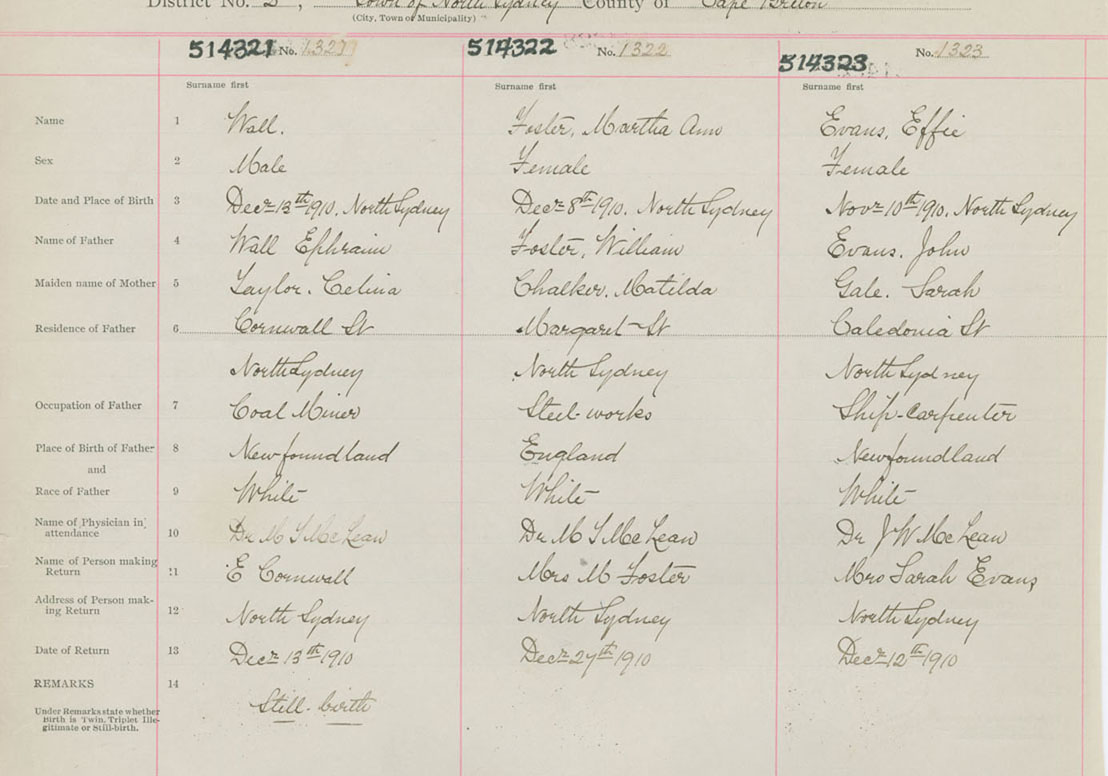 District No. 2, Town of North Sydney County of Cape Breton
(City, Town or Municipality)
514321 No. 1321
514322 No. 1322
514323 No. 1323
Surname first Surname first Surname first
Name 1 Wall. Foster, Martha Ann Evans, Effie
Sex 2 Male Female Female
Date and Place of Birth 3 Decr 13th 1910. North Sydney Decr 8th 1910. North Sydney Novr 10th 1910. North Sydney
Name of Father 4 Wall Ephraim Foster, William Evans. John
Maiden name of Mother 5 Taylor. Celina Chalker. Matilda Gale. Sarah
Residence of Father 6 Cornwall St Margaret St Caledonia St
North Sydney North Sydney North Sydney
Occupation of Father 7 Coal Miner Steel-works Ship-Carpenter
Place of Birth of Father 8 Newfoundland England Newfoundland
and
Race of Father 9 White White White
Name of Physician in attendance 10 Dr M S McLean Dr M S McLean Dr J W McLean
Name of Person making Return 11 E Cornwall Mrs M Foster Mrs Sarah Evans
Address of Person mak-
ing Return 12 North Sydney North Sydney North Sydney
Date of Return 13 Decr 13th 1910 Decr 27th 1910 Decr 12th 1910
REMARKS 14
Still-birth
Under Remarks state whether
Birth is Twin, Triplet Ille-
gitimate or Still-birth.